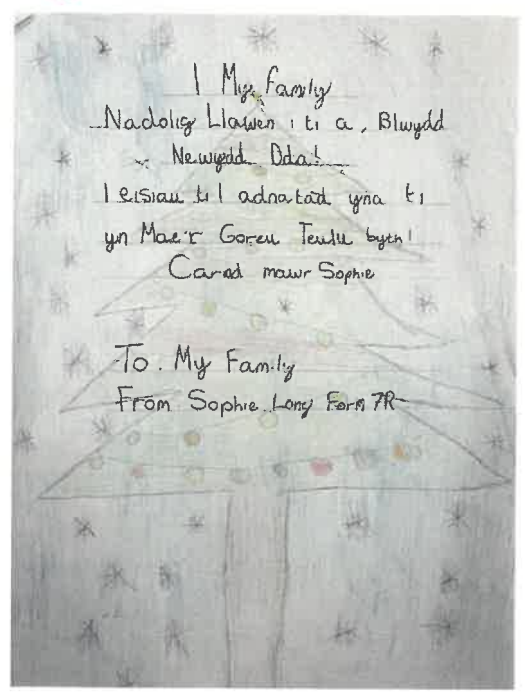 I My Family
Nadolig Llawen i ti a, Blwydd
Newydd Dda!
I eisiau ti I adnatad yna ti
yn Mae'r Goreu Teulu byth!
Carad mawr Sophie
To. My Family
From Sophie Long Form 7R